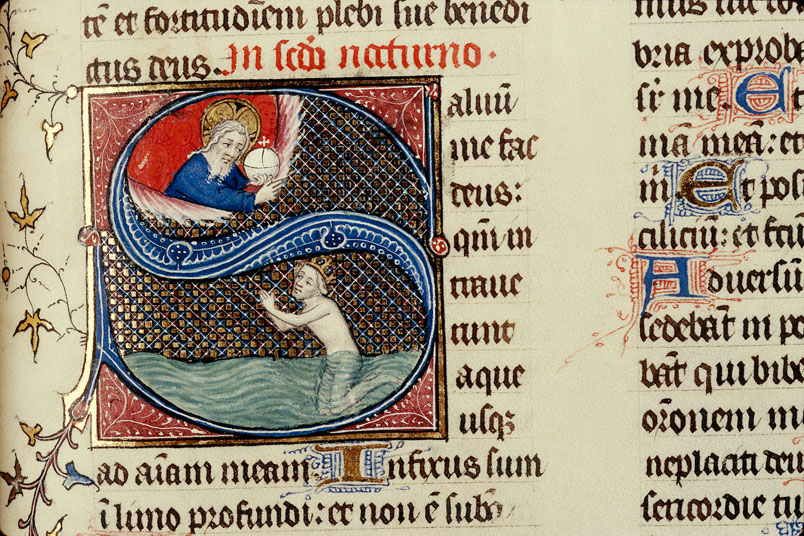 tē et fortitudiēm plebi sue benedi
ctus deus. In scd̄o nocturno.
Saluū
me fac
deus:
qm̄ in
traue
runt
aque
usqȝ
ad aīam meam Infixus sum
ī limo profundi: et non ē subst̄
bria exprobr
sr̄ me. Et
mā meā: et
m̄ Et pos
cilicíū: et fc̄tū
Aduersū
sedebāt in po
bāt qui bibe
or̄onem me
neplaciti deu
sericordie tu